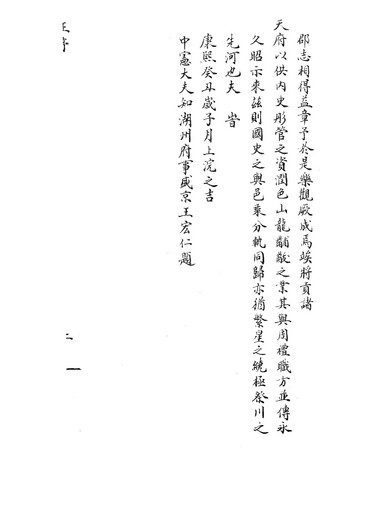 郡志相得益章予於是樂觀厥成焉竢將貢諸
天府以供內史彤管之資潤色山龍黼黻之業其與周禮職方並傳永
久昭示來茲則國史之與邑乘分軌同歸亦猶繁星之繞極祭川之
先河也夫 旹
康熙癸丑歲子月上浣之吉
中憲大夫知湖州府事盛京王宏仁題
王序
二
一